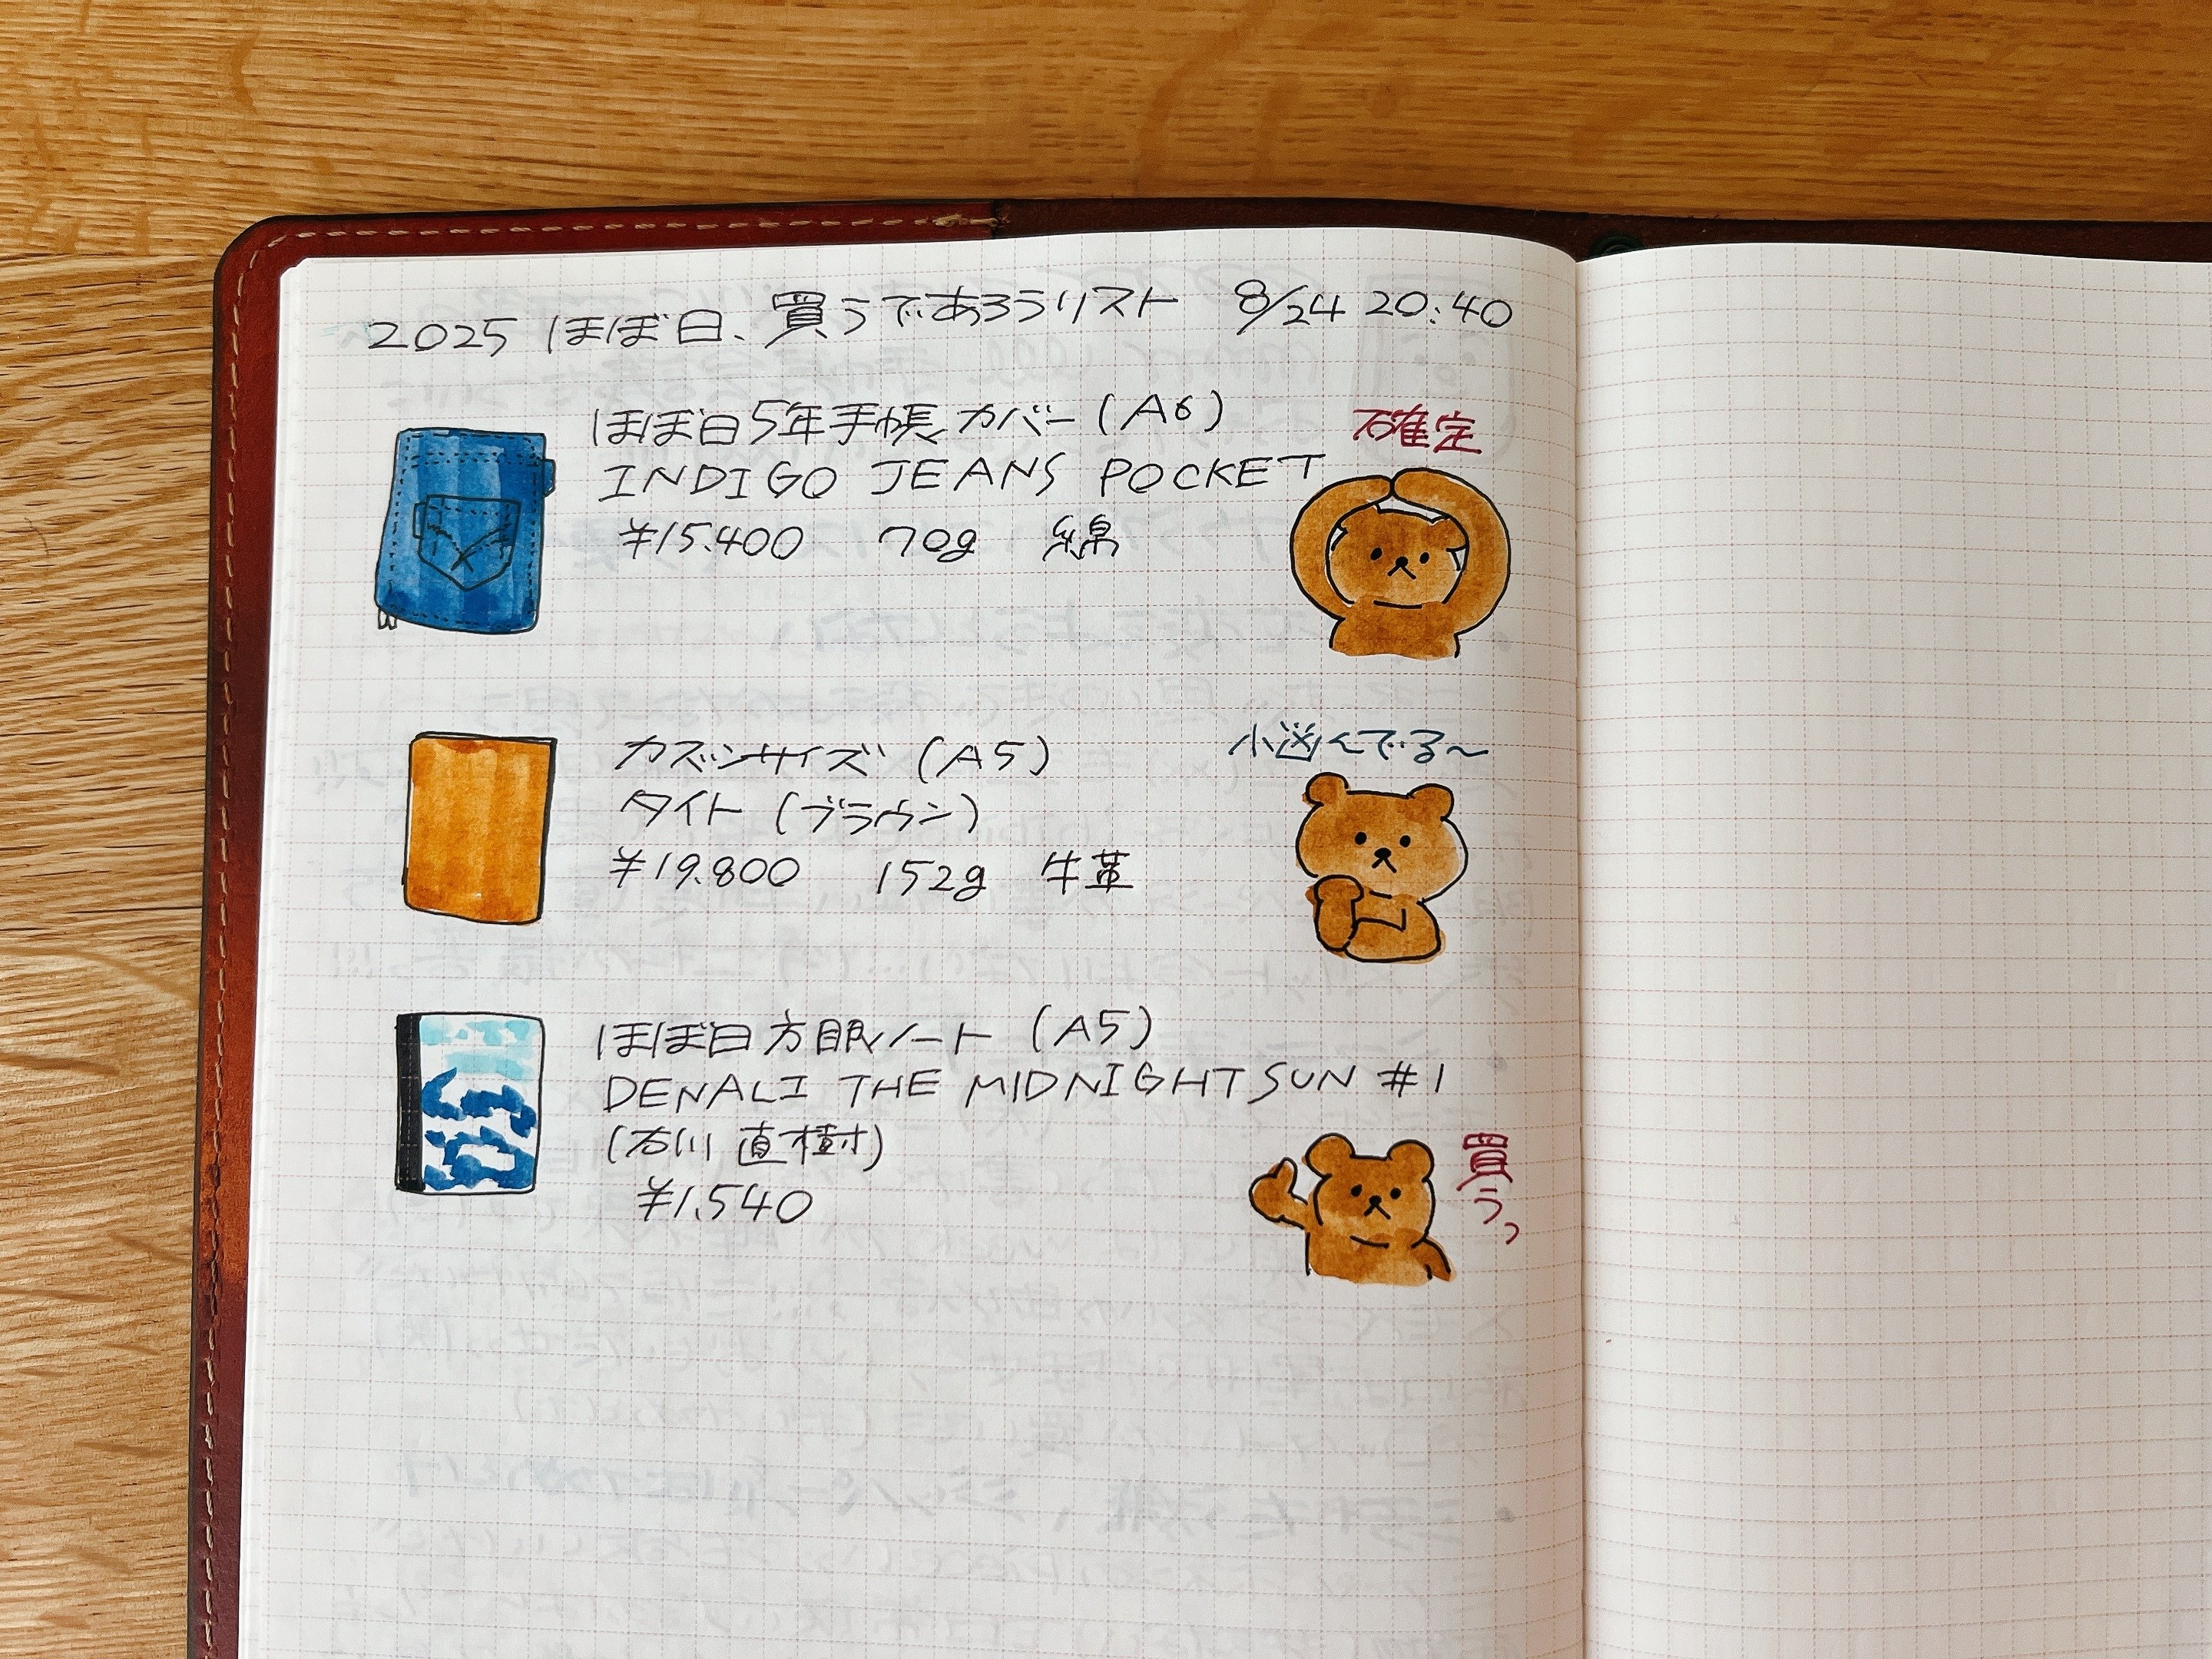 2025 ほぼ日、買うであろうリスト 8/24 20:40
ほぼ日5年手帳カバー(A6)
確定
INDIGO JEANS POCKET
¥15.400 70g 綿
カズンサイズ(A5)
小悩んでる〜
タイト(ブラウン)
¥19.800 152g 牛革
ほぼ日方眼ノート(A5)
DENALI THE MIDNIGHT SUN #1
(石川 直樹)
買うっ
¥1.540